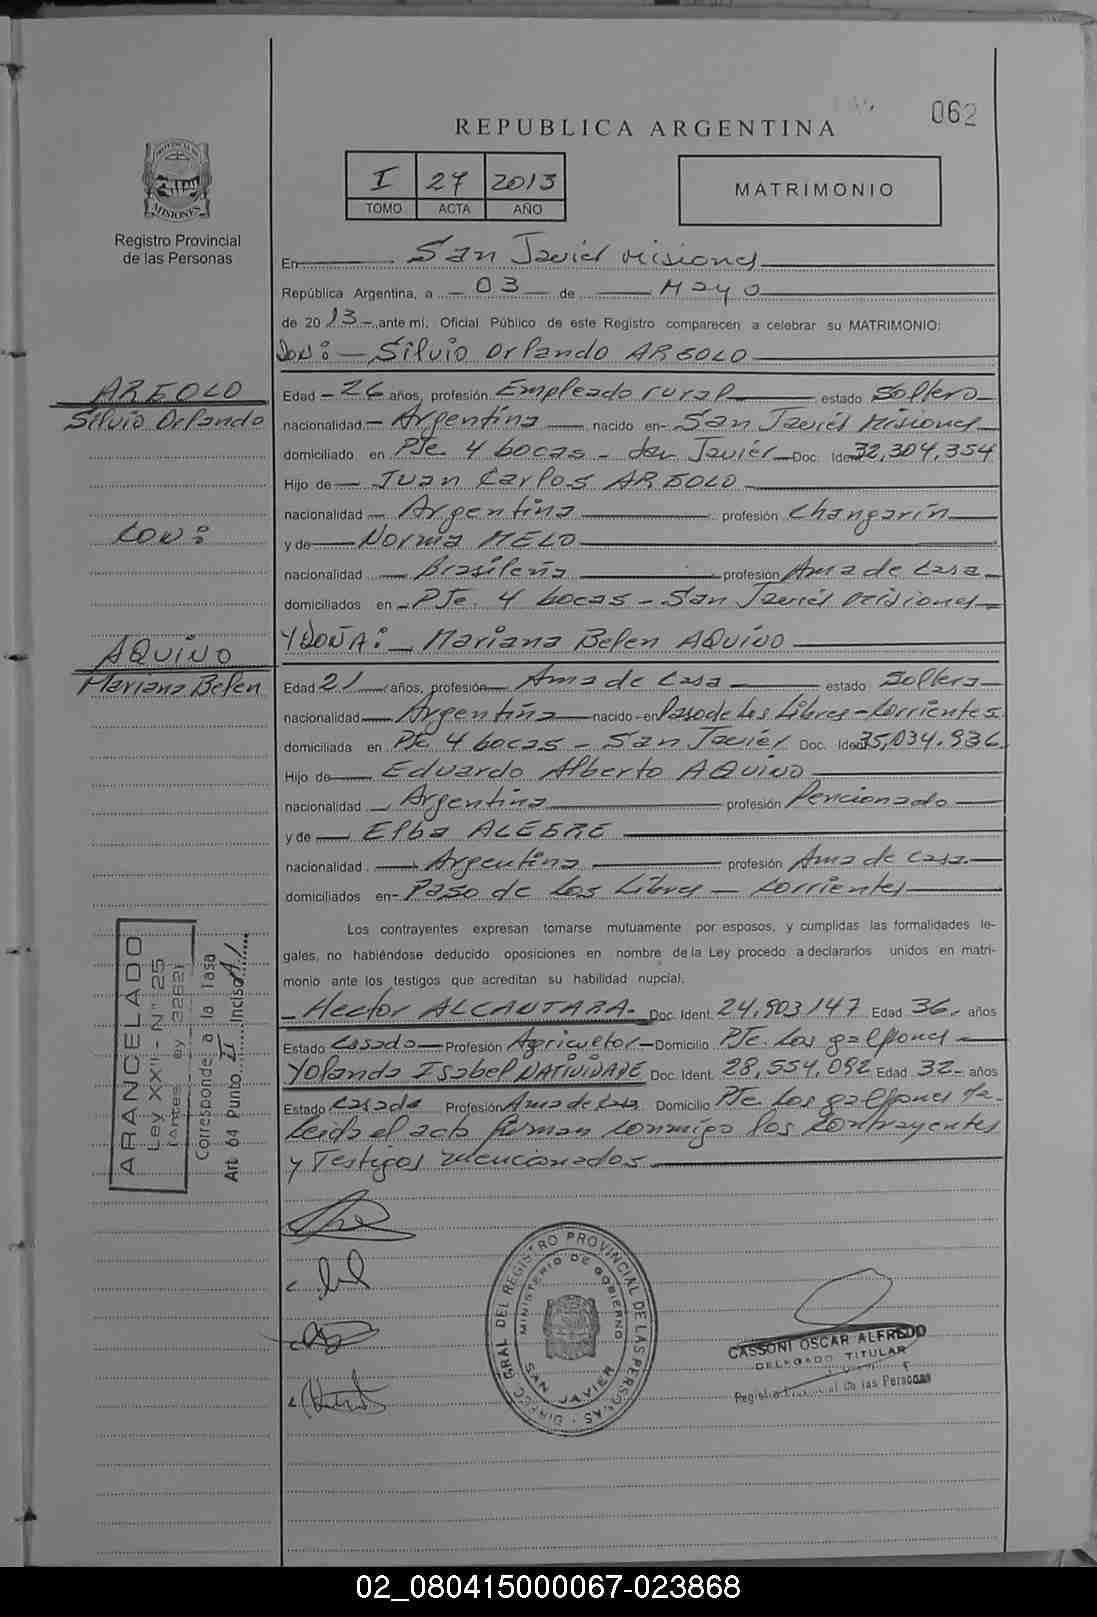 062
REPUBLICA ARGENTINA
PROVINCIA DE
MISIONES
Registro Provincial
de las Personas
I 27 2013
TOMO ACTA AÑO
MATRIMONIO
En San Javier Misiones
República Argentina, a 03 de Mayo
de 2013 ante mí, Oficial Público de este Registro comparecen a celebrar su MATRIMONIO:
DON: Silvio Orlando AREOLO
AREOLO
Silvio Orlando
CON:
AQUINO
Mariana Belen
Edad 26 años, profesión Empleado rural estado Soltero
nacionalidad Argentina nacido en San Javier Misiones
domiciliado en Pje. 4 bocas - San Javier Doc. Ident. 32,304,354
Hijo de Juan Carlos AREOLO
nacionalidad Argentina profesión Changarín
y de Norma MELO
nacionalidad Brasileña profesión Ama de Casa
domiciliados en PJe. 4 bocas - San Javier Misiones
Y DOÑA: Mariana Belen AQUINO
Edad 21 años, profesión Ama de Casa estado Soltera
nacionalidad Argentina nacido en Paso de los Libres - Corrientes
domiciliada en Pje 4 bocas - San Javier Doc. Ident. 35,034,936
Hijo de Eduardo Alberto AQUINO
nacionalidad Argentina profesión Pencionado
y de Elba ALEGRE
nacionalidad Argentina profesión Ama de Casa
domiciliados en Paso de los Libres - Corrientes
Los contrayentes expresan tomarse mutuamente por esposos, y cumplidas las formalidades le-
gales, no habiéndose deducido oposiciones en nombre de la Ley procedo a declararlos unidos en matri-
monio ante los testigos que acreditan su habilidad nupcial.
Hector ALCANTARA- Doc. Ident. 24,903,147 Edad 36 años
Estado Casado Profesión Agricultor Domicilio PJe. Los galpones
Yolanda Isabel NATIVIDADE Doc. Ident. 28,554,092 Edad 32 años
Estado Casada Profesión Ama de Casa Domicilio PJe Los galpones
Leida el acta firman conmigo los Contrayentes
y Testigos mencionados
ARANCELADO
Ley XXII - N° 25
(Antes Ley 3262)
Corresponde a la Tasa
Art. 64 Punto II Inciso A/
DIRECC. GRAL DEL REGISTRO PROVINCIAL DE LAS PERSONAS
MINISTERIO DE GOBIERNO
SAN JAVIER
CASSONI OSCAR ALFREDO
DELEGADO TITULAR
Registro Provincial de las Personas
02_080415000067-023868